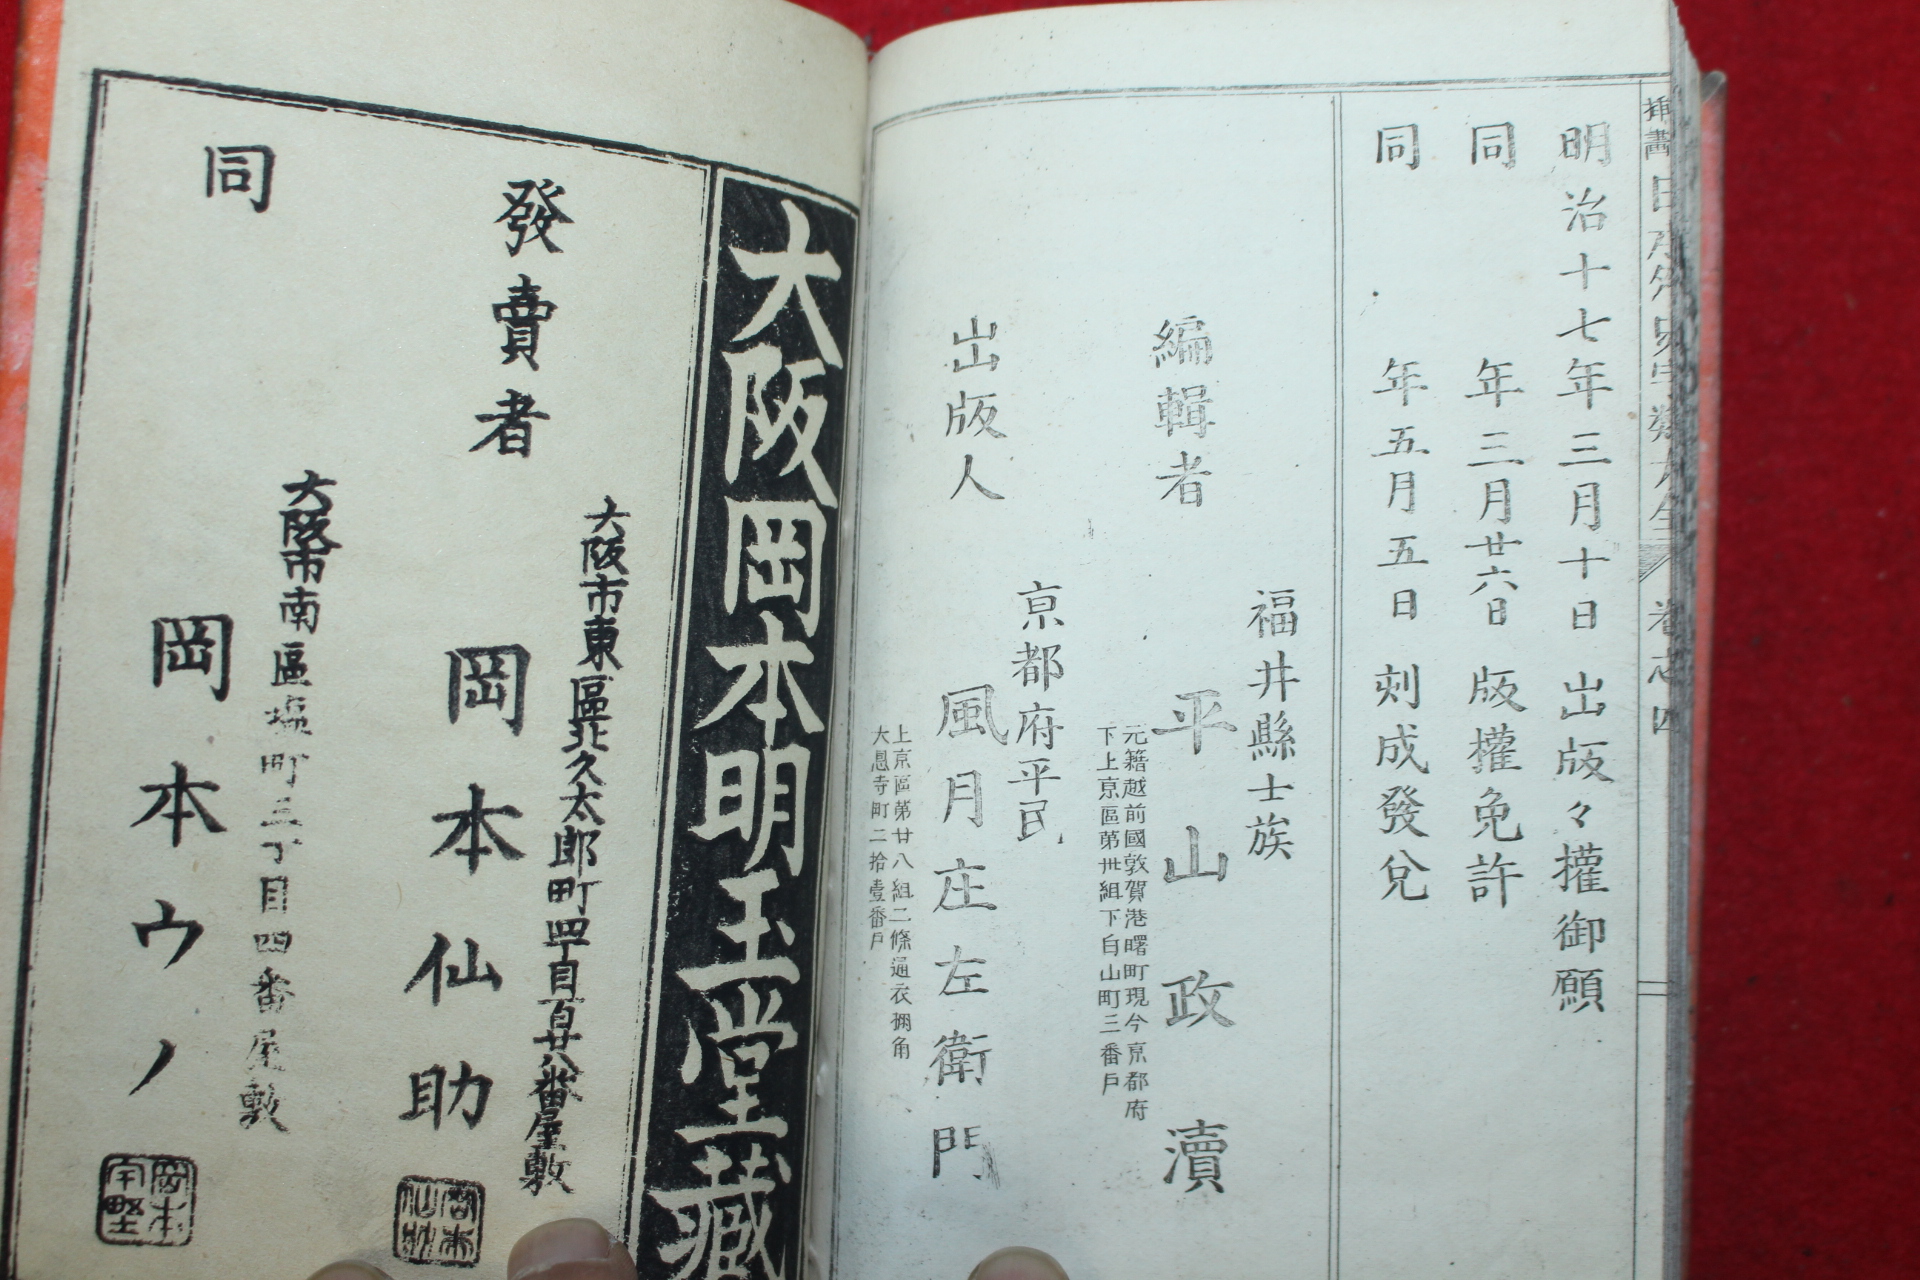 明治十七年三月十日出版々權御願
同年三月廿六日版權免許
同年五月五日刻成發兌
福井縣士族
編輯者平山政瀆
元籍越前國敦賀港曙町現今京都府
下上京區第卅組下白山町三番戶
京都府平民
出版人風月庄左衛門
上京區第廿八組二條通衣棚角
大恩寺町二拾壹番戶
大阪岡本明玉堂藏
大阪市東區北久太郎町四丁目百廿八番屋敷
發賣者岡本仙助
大阪市南區塩町三丁目四番屋敷
同岡本ウノ